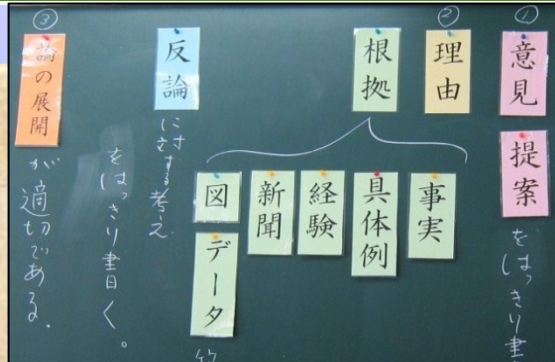 ①
意見
提案
をはっきり書
②
理由
根拠
事実
具体例
経験
新聞
図
データ
反論
に対する考え
をはっきり書く。
③
論の展開
が適切である。